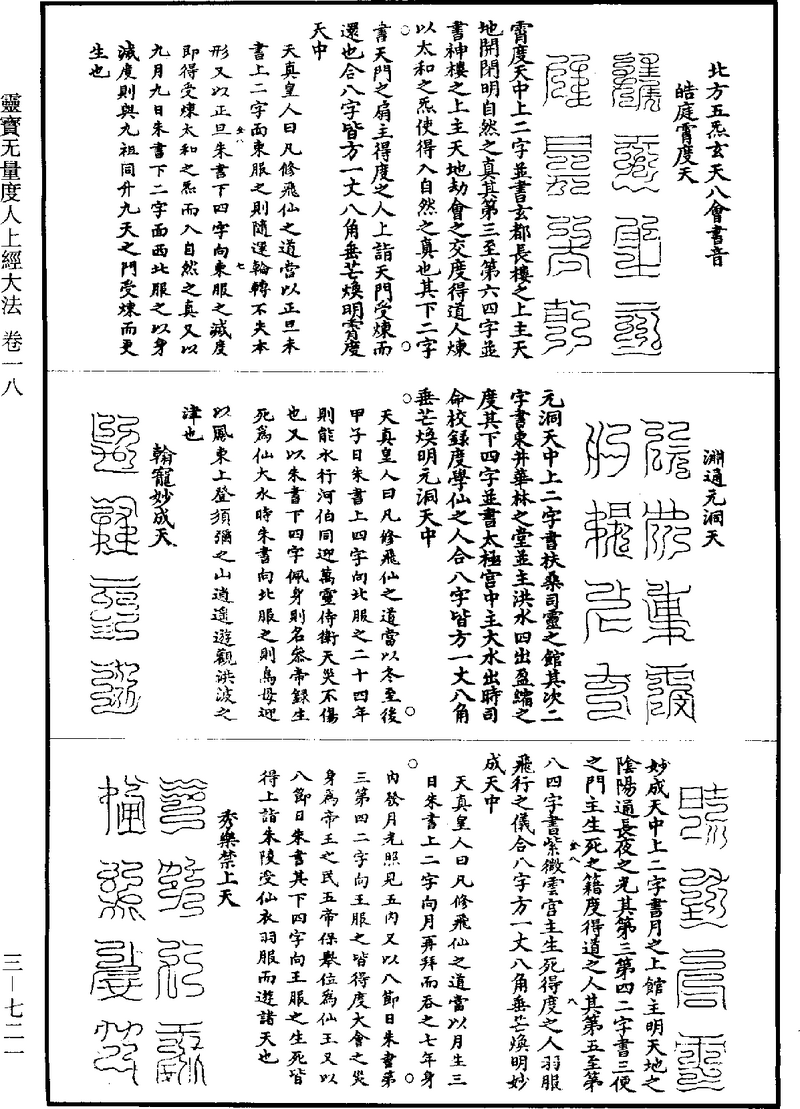 北方五炁玄天八會書音
皓庭霄度天
霄度天中上二字並書玄都長樓之上主天
地開閉明自然之真其第三至第六四字並
書神樓之上主天地劫會之交度得道人煉
以太和之炁使得入自然之真也其下二字
書天門之扃主得度之人上詣天門受煉而
還也合八字皆方一丈八角垂芒煥明霄度
天中
天真皇人曰凡修飛仙之道當以正旦朱
書上二字而東服之則隨運輪轉不失本
形又以正旦朱書下四字向東服之滅度
即得受煉太和之炁而入自然之真又以
九月九日朱書下二字面西北服之以身
滅度則與九祖同升九天之門受煉而更
生也
淵通元洞天
元洞天中上二字書扶桑司靈之館其次二
字書東井華林之堂並主洪水四出盈縮之
度其下四字並書太極宮中主大水出時司
命校錄度學仙之人合八字皆方一丈八角
垂芒煥明元洞天中
天真皇人曰凡修飛仙之道當以冬至後
甲子日朱書上四字向北服之二十四年
則能水行河伯同迎萬靈侍衛天災不傷
也又以朱書下四字佩身則名參帝錄生
死為仙大水時朱書向北服之則鳥母迎
以鳳東上登須彌之山逍遙遊觀洪波之
津也
翰寵妙成天
妙成天中上二字書月之上館主明天地之
陰陽通長夜之光其第三第四二字書三便
之門主生死之籍度得道之人其第五至第
八四字書紫微雲宮主生死得度之人羽服
飛行之儀合八字方一丈八角垂芒煥明妙
成天中
天真皇人曰凡修飛仙之道當以月生三
日朱書上二字向月再拜而吞之七年身
內發月光照見五內又以八節日朱書第
三第四二字向王服之皆得度大會之災
身為帝王之民五帝保舉位為仙王又以
八節日朱書其下四字向王服之生死皆
得上詣朱陵受仙衣羽服而遊諸天也
秀樂禁上天
靈寶无量度人上經大法 卷一八
三—七二一